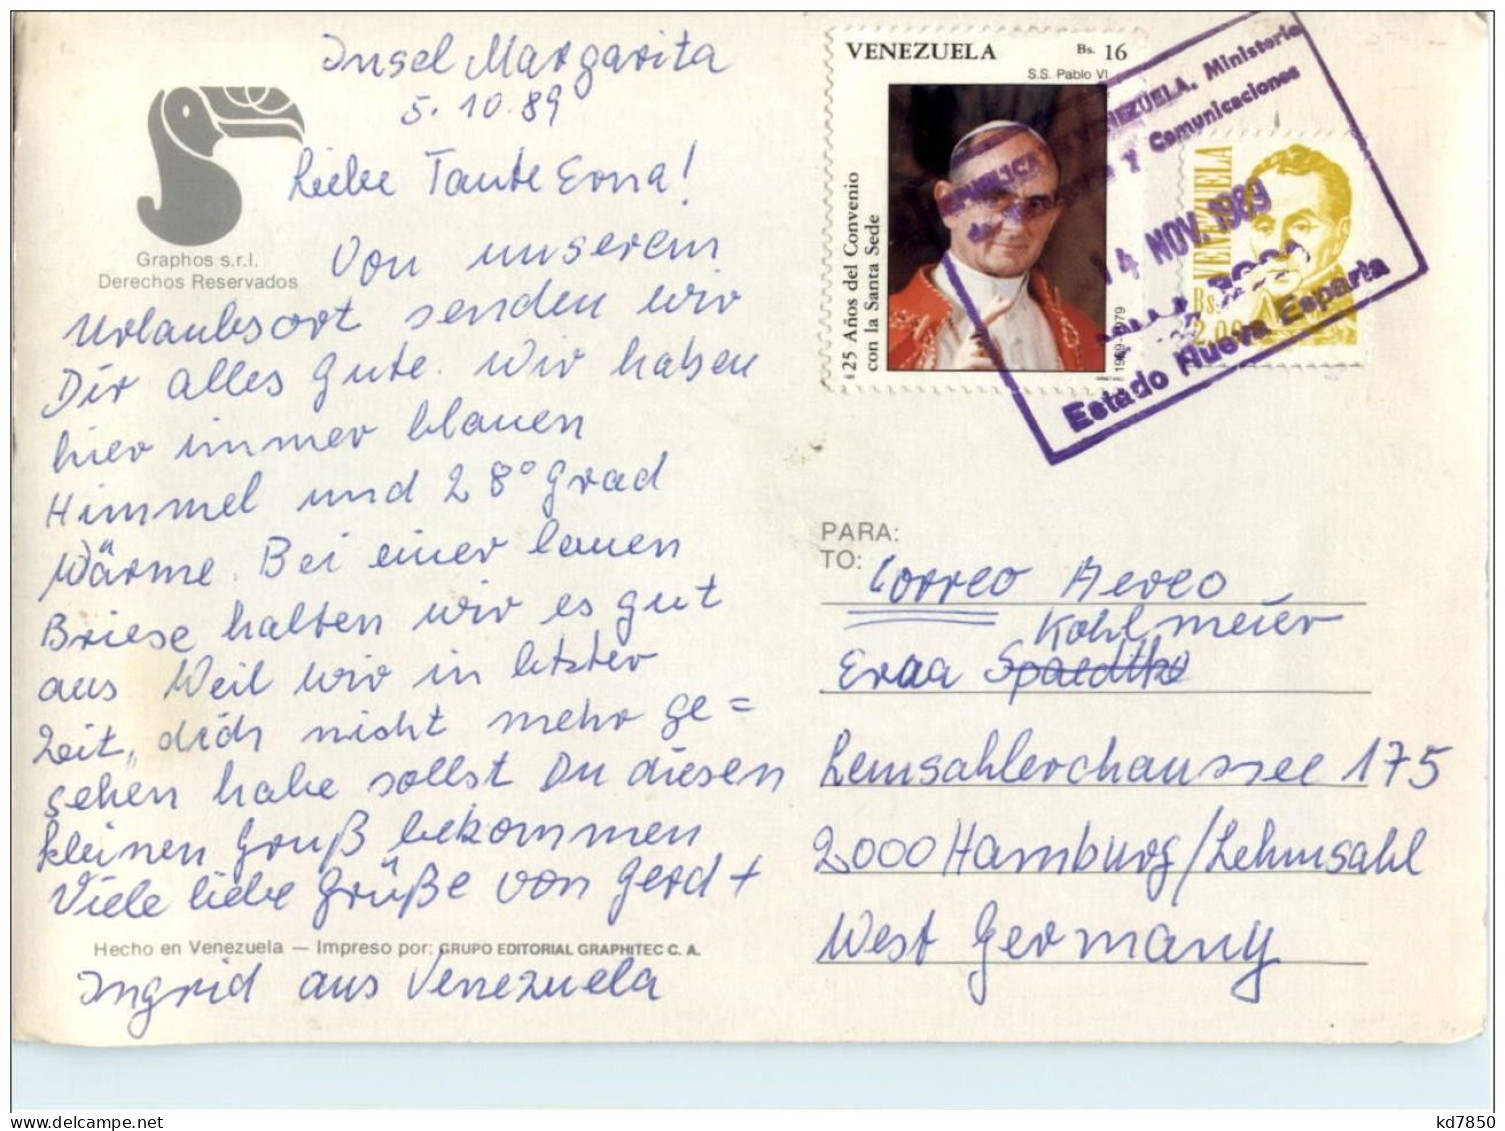 Insel Margarita
5.10.89
Liebe Tante Erna!
Von unserem
Urlaubsort senden wir
Dir alles Gute. Wir haben
hier immer blauen
Himmel und 28° Grad
Wärme. Bei einer lauen
Briese halten wir es gut
aus Weil wir in letzter
Zeit, dich nicht mehr ge=
sehen habe sollst Du diesen
kleinen Gruß bekommen
Viele liebe Grüße von Gerd +
Ingrid aus Venezuela
Graphos s.r.l.
Derechos Reservados
Hecho en Venezuela — Impreso por: GRUPO EDITORIAL GRAPHITEC C. A.
VENEZUELA Bs. 16
S.S. Pablo VI
25 Años del Convenio
con la Santa Sede
VENEZUELA
Bs. 2,00
VENEZUELA. Ministerio
Y Comunicaciones
14 NOV. 1989
Estado Nueva Esparta
PARA:
TO:
Correo Aereo
Kohlmeier
Erna Spaedtke
Lemsahlerchaussee 175
2000 Hamburg/Lehmsahl
West Germany
kd7850
delcampe.net